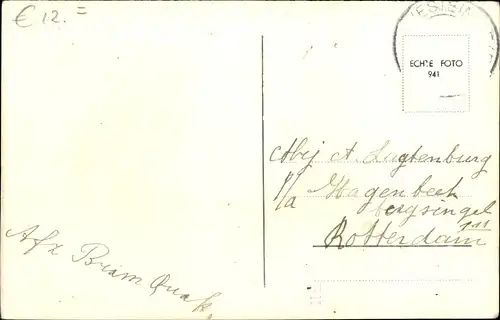 € 12. =
ECHTE FOTO
941
Mej A. Lugtenburg
P/a Hagenbeek
bergsingel
111
Rotterdam
Afz Bram Quak.